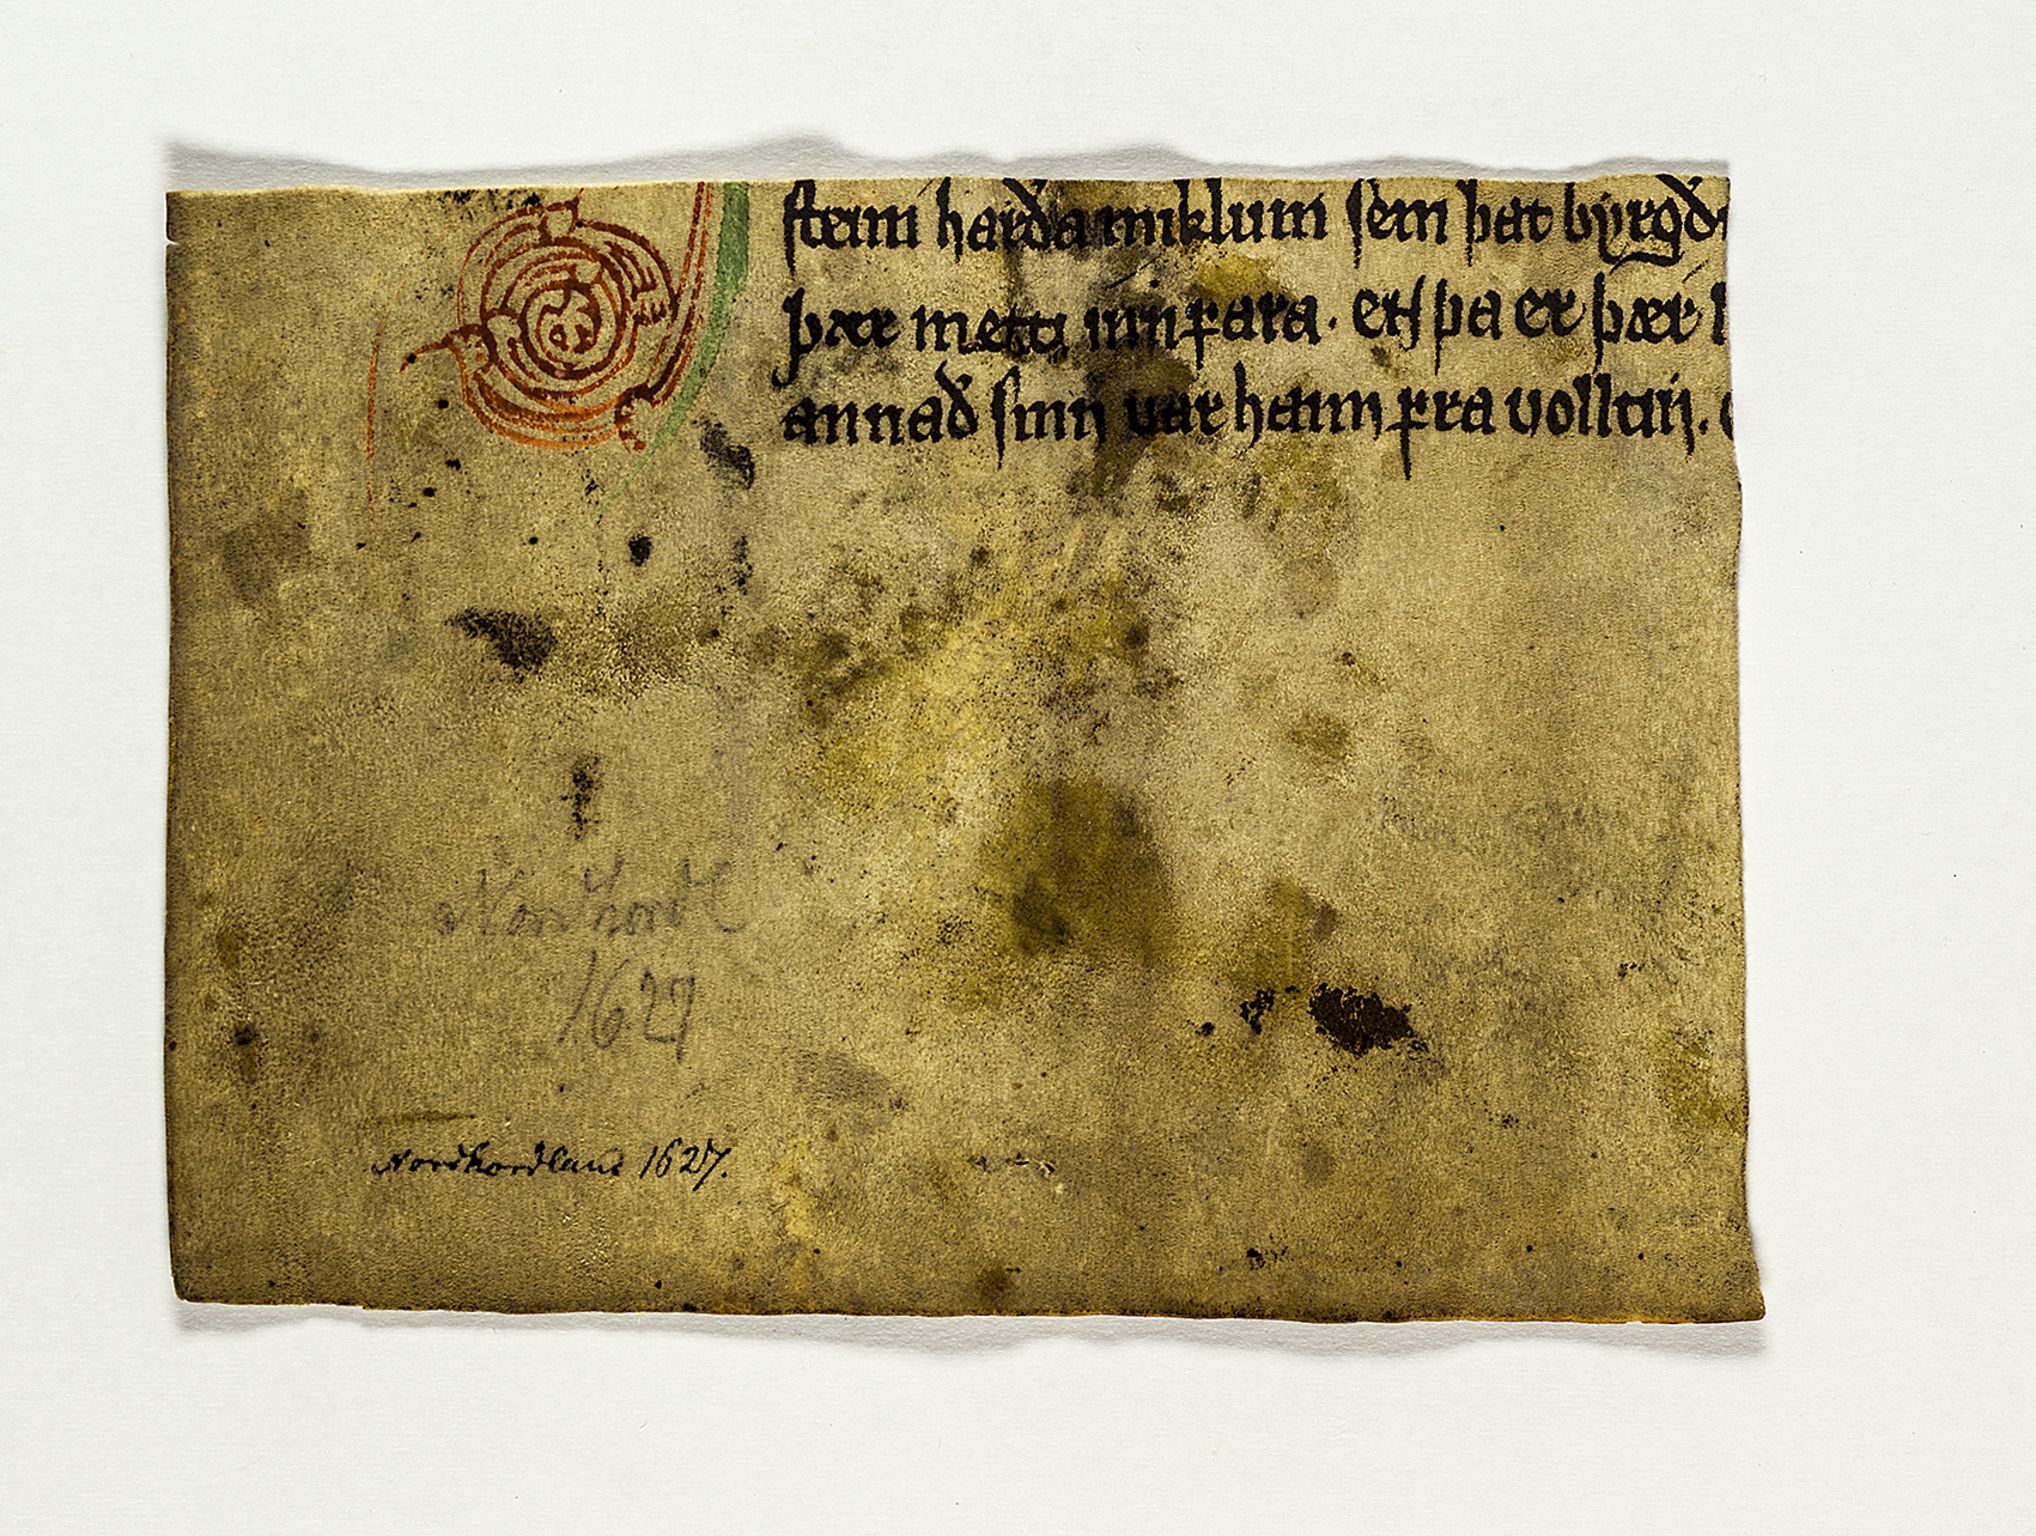 stein harða miklum sem þat byrgð
þær mætti inn fara. en þa er þær
annað sinn var hann fra volltin.
Nordhordl
1627
Nordhordland 1627.